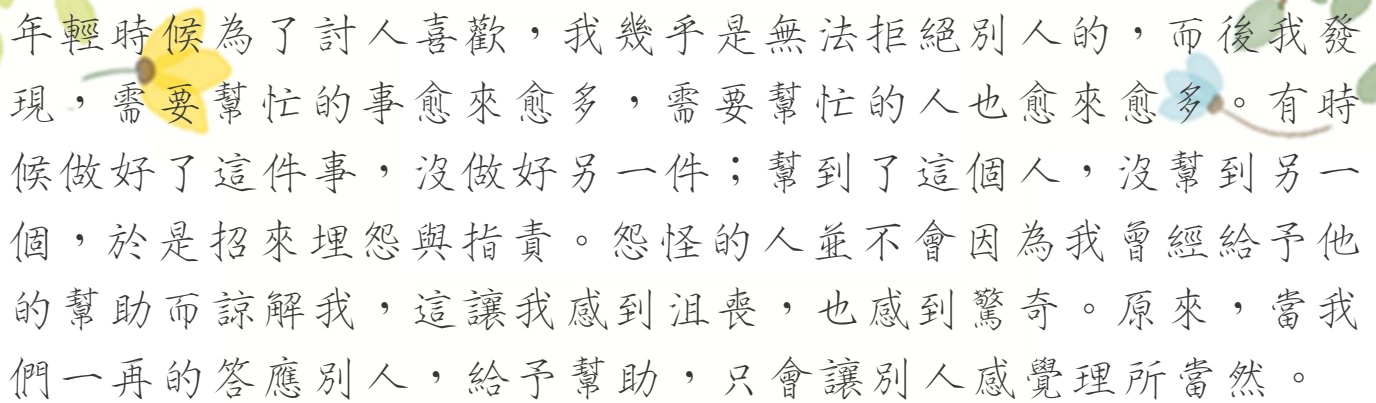 年輕時候為了討人喜歡，我幾乎是無法拒絕別人的，而後我發
現，需要幫忙的事愈來愈多，需要幫忙的人也愈來愈多。有時
候做好了這件事，沒做好另一件；幫到了這個人，沒幫到另一
個，於是招來埋怨與指責。怨怪的人並不會因為我曾經給予他
的幫助而諒解我，這讓我感到沮喪，也感到驚奇。原來，當我
們一再的答應別人，給予幫助，只會讓別人感覺理所當然。